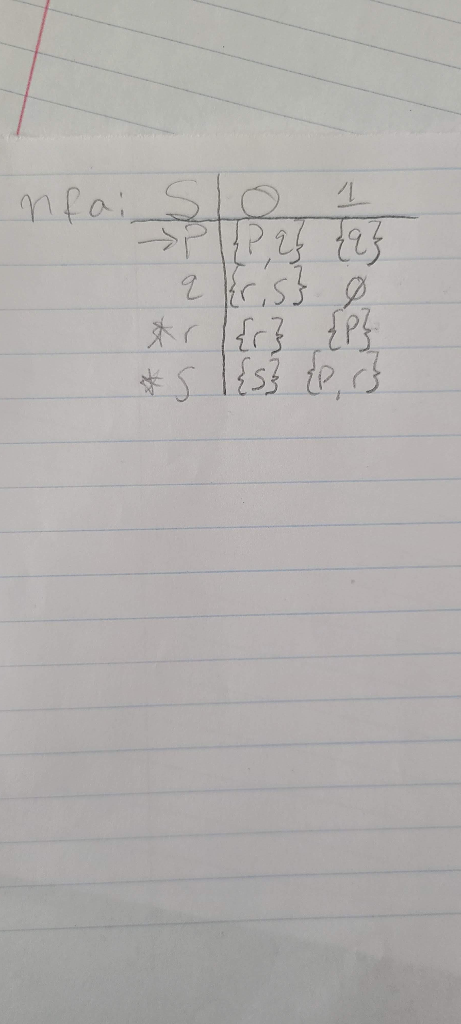 nfa: S 0 1
→P {P,q} {q}
q {r,s} ∅
*r {r} {P}
*S {S} {P,r}